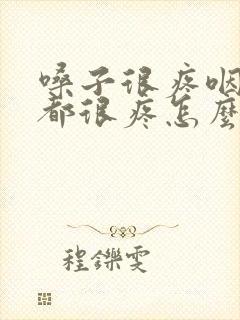 嗓子很疼咽
都很疼怎麼
程鑠雯